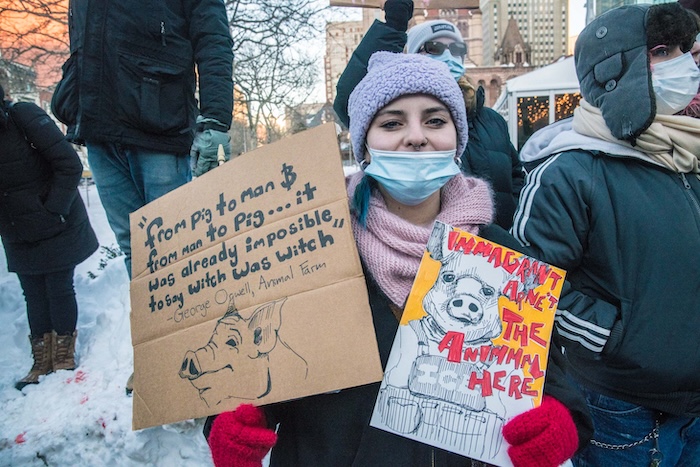 "from pig to man $
from man to Pig...it
was already imposible
to say witch was witch"
-George Orwell, Animal Farm
IMMAGRANT
ARNE'T
THE
HERE